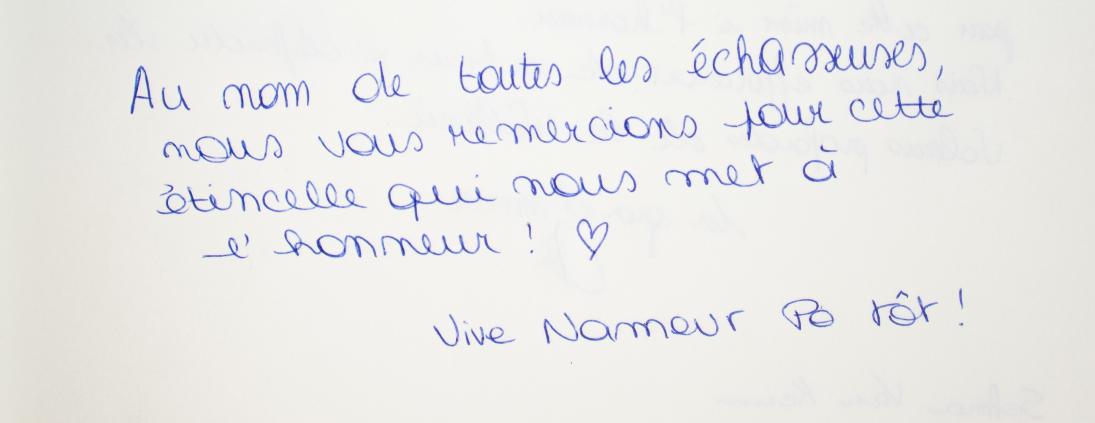 Au nom de toutes les échasseuses,
nous vous remercions pour cette
étincelle qui nous met à
l'honneur ! ♡
Vive Nameur Po tôt !